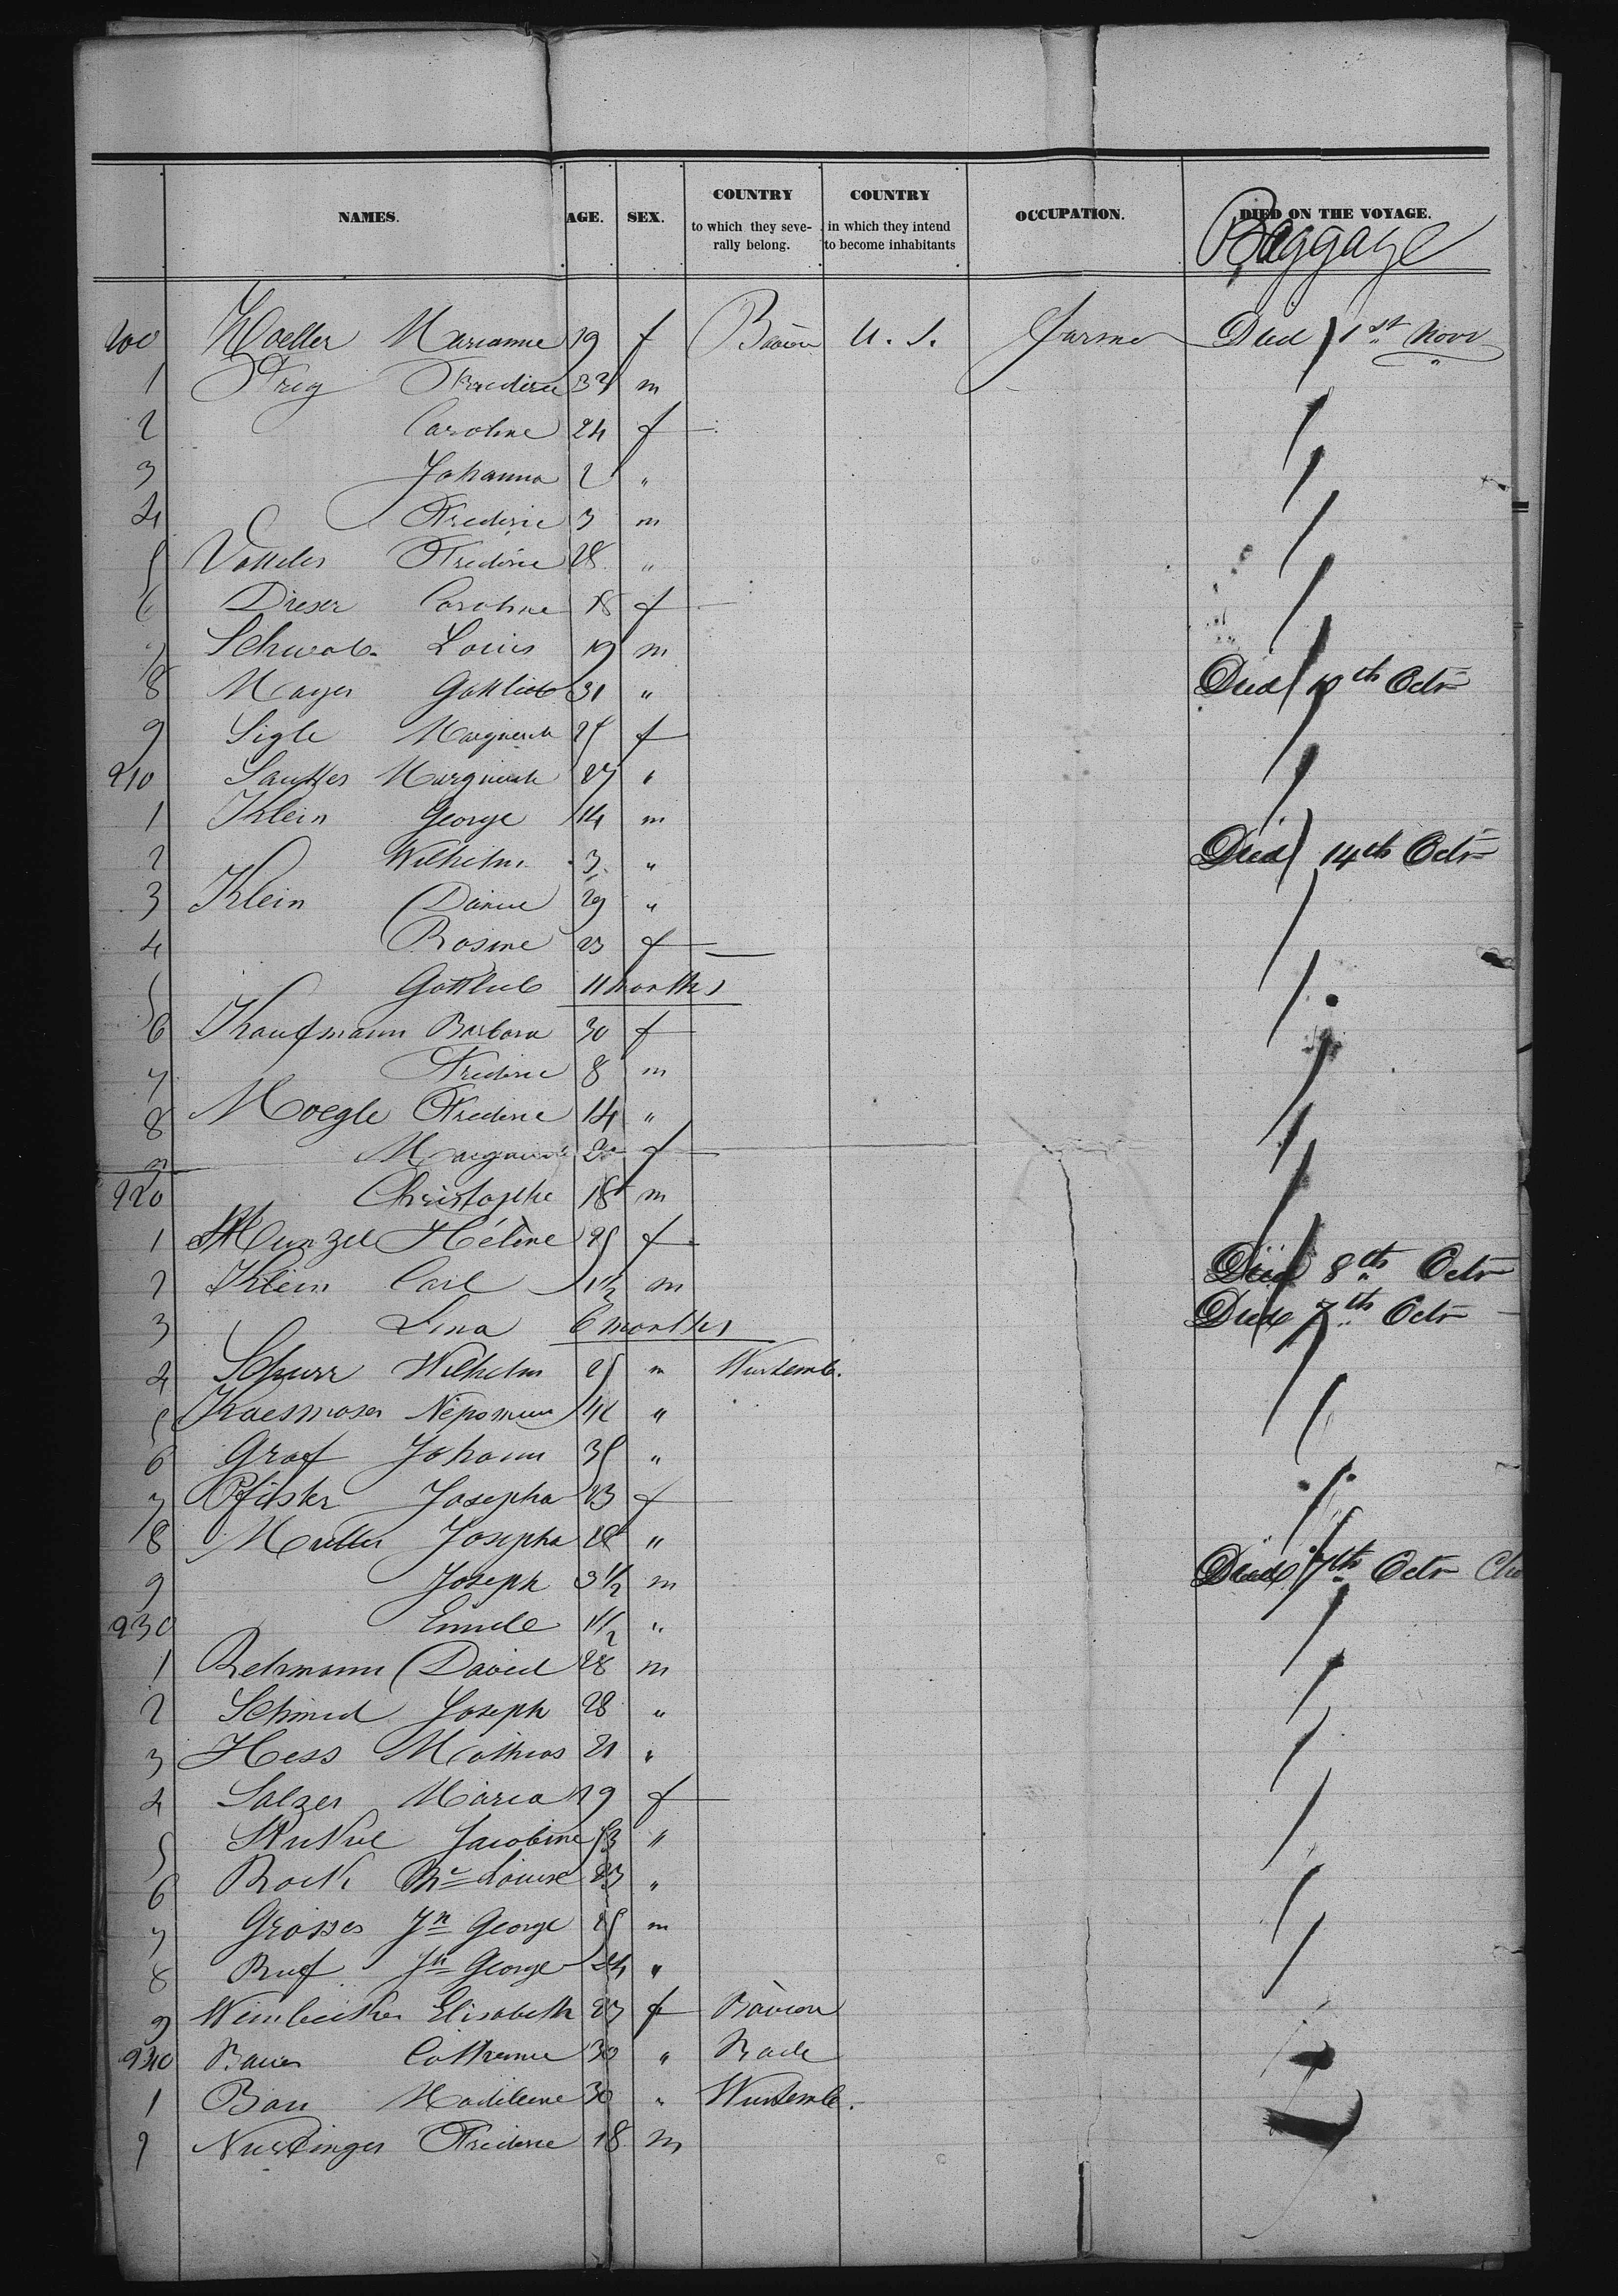 NAMES. AGE. SEX. COUNTRY to which they severally belong. COUNTRY in which they intend to become inhabitants OCCUPATION. DIED ON THE VOYAGE.
Baggage
200 Marianne 19 f U. S. Farmer Died 1st Novr
1 Frey Frederic 32 m
2 Caroline 24 f
3 Johanna 2 "
4 Frederic 3 m
5 Frederic 28 "
6 Dieser Caroline 18 f
7 Schwab Louis 19 m
8 Mayer Gottlieb 31 " Died 10th Octr
9 Sigle f
910 Sautter 27 "
1 Klein George 14 m
2 Wilhelm 3 " Died 14th Octr
3 Klein 29 "
4 Rosine 23 f
5 Gottlieb 11 months
6 Kaufmann Barbara 30 f
7 Frederic 8 m
8 Moegle Frederic 14 "
9 f
920 Christophe 18 m
1 Hélène 25 f Died 8th Octr
2 Klein Carl 1½ m Died 7th Octr
3 Lina 6 months
4 Schurr Wilhelm 25 m Wurtemb.
5 "
6 Graf Johann 35 "
7 Pfister Josepha 23 f
8 Muller Josepha 28 "
9 Joseph 3½ m Died 7th Octr
930 Emile 1½ "
1 David 28 m
2 Schmid Joseph 28 "
3 Hess Mathias 21 "
4 Salzer Maria 19 f
5 Jacobine 53 "
6 Louise 23 "
7 Jn George 25 m
8 Ruf Jn George 24 "
9 Elisabeth 23 f
940 Bauer 30 " Bade
1 Bau Madeleine 30 " Wurtemb.
2 Frederic 18 m